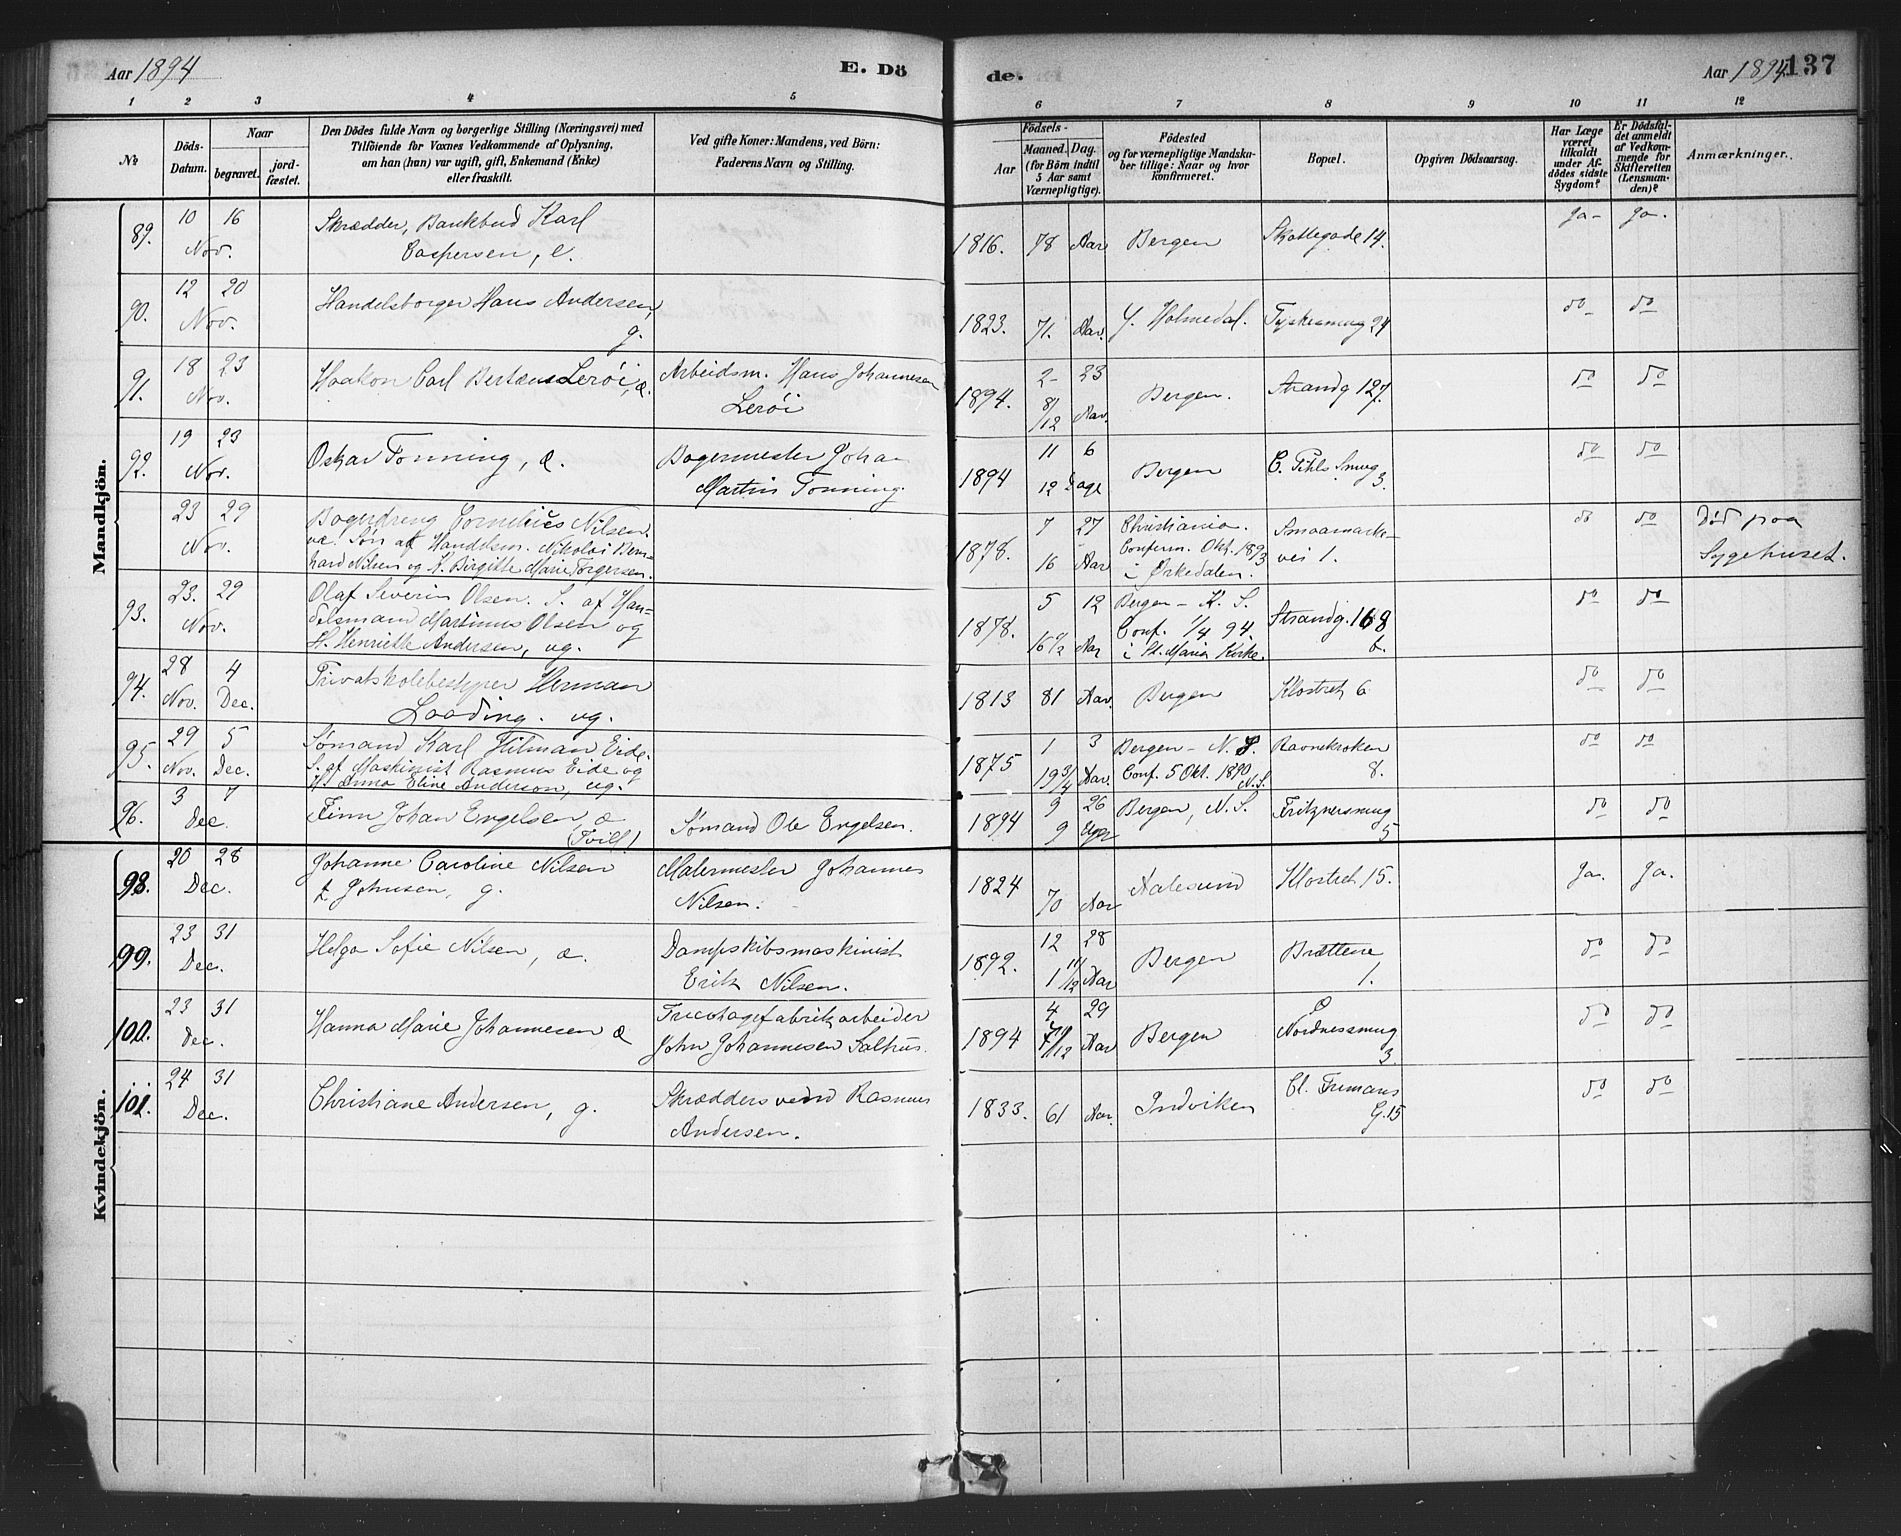 Aar 1894
E. Dö
de.
Aar 1894
137
1 2 3 4 5 6 7 8 9 10 11 12
No
Döds-
Datum.
Naar
begravet.
jord-
fæstet.
Den Dödes fulde Navn og borgerlige Stilling (Næringsvei) med
Tilföiende for Voxnes Vedkommende af Oplysning,
om han (hun) var ugift, gift, Enkemand (Enke)
eller fraskilt.
Ved gifte Koner: Mandens, ved Börn:
Faderens Navn og Stilling.
Födsels-
Aar
Maaned.
Dag.
(for Börn indtil
5 Aar samt
Værnepligtige).
Födested
og for værnepligtige Mandska-
ber tillige: Naar og hvor
konfirmeret.
Bopæl.
Opgiven Dödsaarsag.
Har Læge
været
tilkaldt
under Af-
dödes sidste
Sygdom?
Er Dödsfal-
det anmeldt
af Vedkom-
mende for
Skifteretten
(Lensman-
den)?
Anmærkninger.
Mandkjön.
89.
10 16
Nov.
Skrædder, Bankbud Karl
Caspersen, e.
1816. 78 Aar
Bergen
Skottegade 14.
Ja- Ja.
90.
12 20
Nov.
Handelsborger Hans Andersen,
g.
1823. 71. Aar.
Y. Holmedal.
Tydskesmug 24
do do
91.
18 23
Nov.
Haakon Carl Lerøi, æ.
Arbeidsm. Hans Johannesen
Lerøi
1894.
2- 23
8/12 Aar
Bergen.
Strandg 127.
do do
92.
19 23
Nov.
Oskar Tonning, æ.
Bagermester Johan
Martin Tonning.
1894
11 6
12 Dage
Bergen
C. Pihls Smug
3.
do do
23 29
Nov.
Bagerdreng Cornelius Nilsen.
Søn af Handelsm. Nikolai Bern-
hard Nilsen og H. Birgitte Marie Torgersen.
1878.
7 27
16 Aar
Christiania.
Conferm. Okt. 1893
i Ørkedalen.
Smaamarke-
vei 1.
do do
Død paa
Sygehuset.
93.
23. 29
Nov.
Olaf Severin Olsen. S. af Han-
delsmand Martinus Olsen og
H. Henriette Andersen, ug.
1878.
5 12
16 1/2 Aar
Bergen - K. S.
Conf. 1/4 94.
i St. Maria Kirke.
Strandg. 168
b.
do do
94.
28 4
Nov. Dec.
Privatskolebestyrer Herman
Laading. ug.
1813 81 Aar.
Bergen
Klostret 6
do do
95.
29 5
Nov. Dec.
Sømand Karl Hilman Eide.
S. af Maskinist Rasmus Eide og
H. Anna Eline Anderson, ug.
1875
1 3
19 3/4 Aar.
Bergen - N. S.
Conf. 5 Okt. 1890
N. S.
Ravnekroken
8.
do do
96.
3 7
Dec.
Finn Johan Engelsen, æ
(Tvill)
Sømand Ole Engelsen.
1894
9 26
9 Uger
Bergen, N. S.
Fritznersmug
5
do do
Kvindekjön.
98.
20 28
Dec.
Johanne Caroline Nilsen
f. Johnsen, g.
Malermester Johannes
Nilsen.
1824
70 Aar
Aalesund
Klostret 15.
Ja. Ja.
99.
23 31
Dec.
Helga Sofie Nilsen, æ.
Dampskibsmaskinist
Erik Nilsen.
1892.
12 28
1 11/12 Aar
Bergen
Brættene
1.
do do
100.
23 31
Dec.
Hanna Marie Johannesen æ
Tricotagefabrikarbeider
John Johannesen Salhus.
1894
4 29
Aar
Bergen
Ø
Nordnessmug
3
do do
101.
24 31
Dec.
Christiane Andersen, g.
Skræddersvend Rasmus
Andersen.
1833. 61 Aar.
Indviken
Cl. Frimans
G. 15
do do